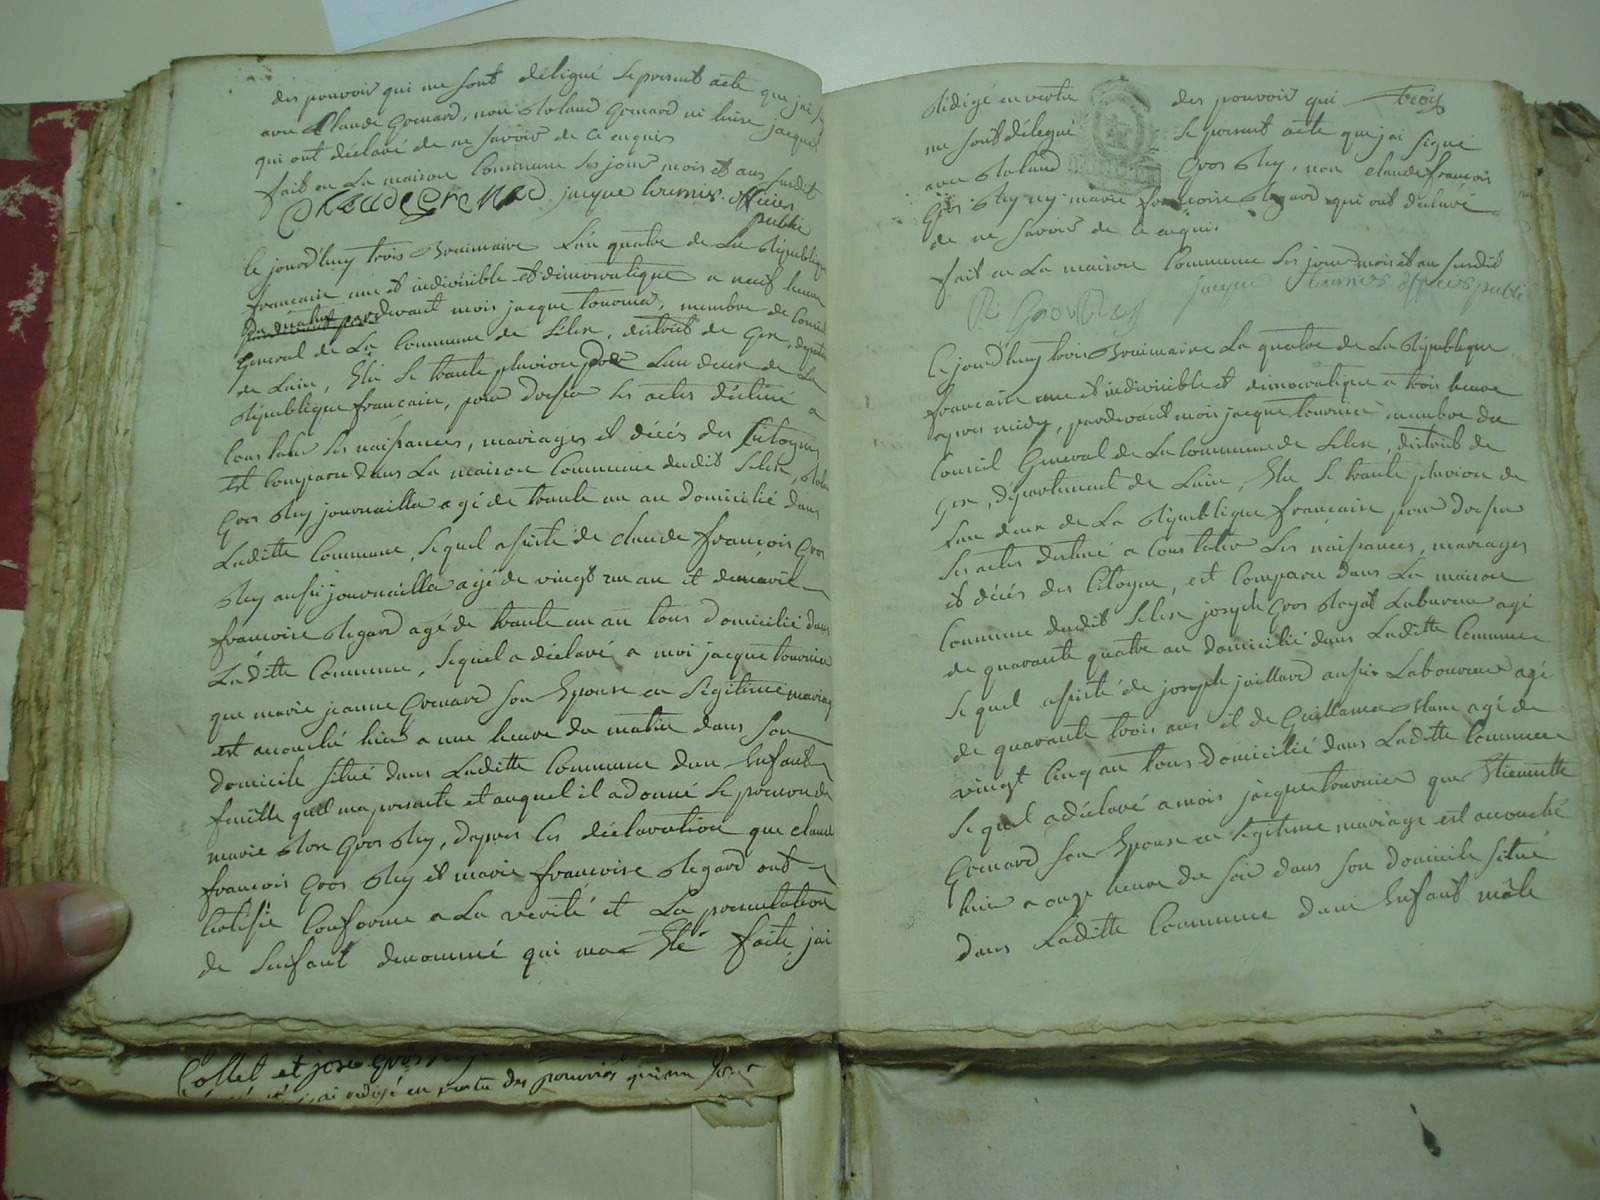 des pouvoir qui me sont délégué le present acte que j'ai
avec Claude Grenard, non Roland Grenard ni luise jacquet
qui ont déclaré de ne savoir de ce enquis
fait en La maison Commune les jour mois et ans susdit
Claude Grenard jacque tournier officier
public
le jourd'huy trois Brumaire L'an quatre de La République
francaise une et indivisible et dimocratique a neuf heure
du matin pardevant mois jacque tournier, membre de Conseil
General de La Commune de Lelex, district de Gex, departement
de Lain, Elu le trante pluviose L'an deux de La
République francaise, pour dresser les actes déstiné a
Constater les naissances, mariages et décés des Citoyens
est comparu dans La maison Commune dudit Lelex, Rolan
Gros Rey journaillier agé de trante un an domicilié dans
Laditte Commune, lequel assisté de claude françois Gros
Rey aussi journaillier agé de vingt un an et de marie
francoise Regard agé de trante un an tous domicilié dans
Laditte Commune, lequel a déclaré a moi jacque tournier
que marie jeanne Grenard son Epouse en légitime mariage
est acouché hier a une heure du matin dans son
domicile situé dans Laditte Commune d'un Enfant
femelle quil ma presenté et auquel il a donné le prenom de
marie Rose Gros Rey, dapres les déclaration que claude
francois Gros Rey et marie francoise Regard ont
Certifié Conforme a La verité et La presentation
de Lenfant denommé qui ma Eté faite, jai
Rédigé en vertu des pouvoir qui trois
me sont délegué le present acte que jai signé
avec Roland Gros Rey, non claude francois
Gros Rey ny marie francoise Regard qui ont déclaré
de ne savoir de ce enquis.
fait en La maison Commune les jour mois et an susdit
R Gros Rey jacque tournier officier public
Ce jourd'huy trois Brumaire La quatre de La République
francaise une et indivisible et dimocratique a trois heure
apres midy, pardevant mois jacque tournier membre du
Conseil General de La Commune de Lelex, district de
Gex, département de Lain, Elu le trante pluviose de
Lan deux de La République francaise pour dresser
les actes destiné a Constater les naissances, mariages
et décés des Citoyens, est Comparu dans La maison
Commune dudit Lelex joseph Gros Reyat Laboureur agé
de quarante quatre an domicilié dans Laditte Commune
lequel assisté de joseph jaillard aussi Laboureur agé
de quarante trois ans et de Guillaume Blanc agé de
vingt Cinq an tous domicilié dans Laditte Commune
lequel a déclaré a mois jacque tournier que Etiennette
Grenard son Epouse en légitime mariage est acouché
hier a onze heure du soir dans son domicile situé
dans Laditte Commune dun Enfant mâle
Collet et jose Gros
jai redigé en vertu des pouvoirs qui me sont